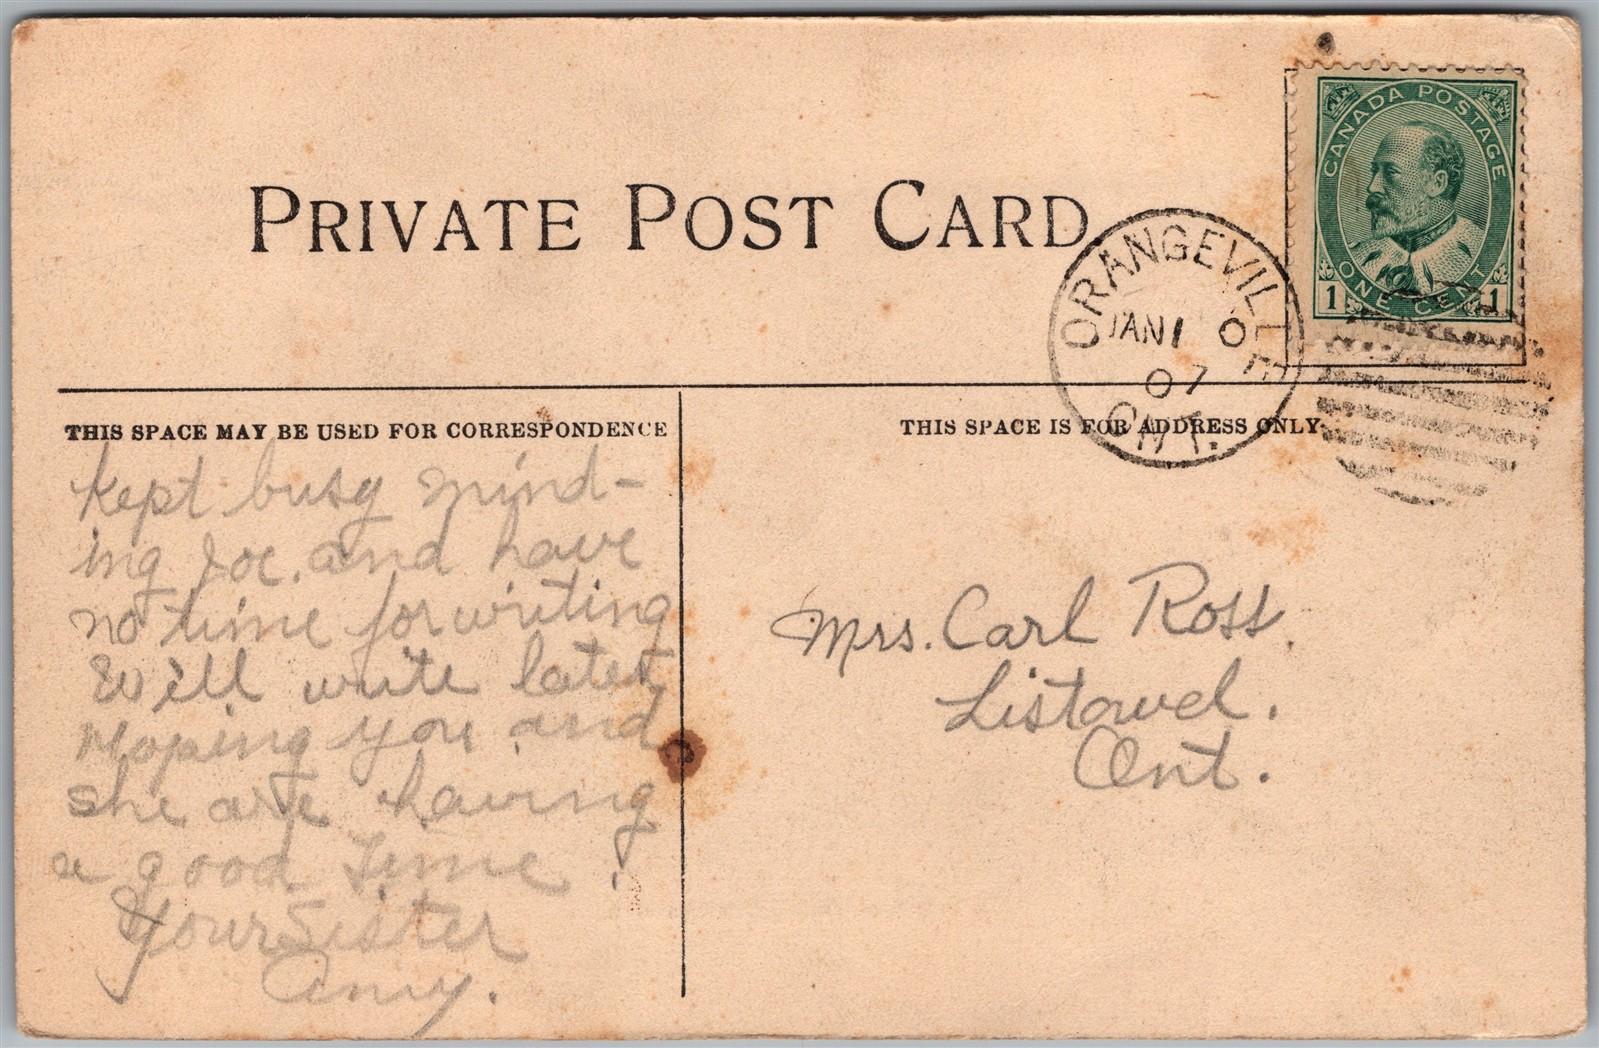 PRIVATE POST CARD
CANADA POSTAGE
ONE CENT
1 1
ORANGEVILLE
JAN 1 0
07
ONT.
THIS SPACE MAY BE USED FOR CORRESPONDENCE
THIS SPACE IS FOR ADDRESS ONLY
kept busy mind-
ing Joe. and have
no time for writing
Will write later
Hoping you and
she are having
a good time.
Your Sister
Amy.
Mrs. Carl Ross.
Listowel.
Ont.